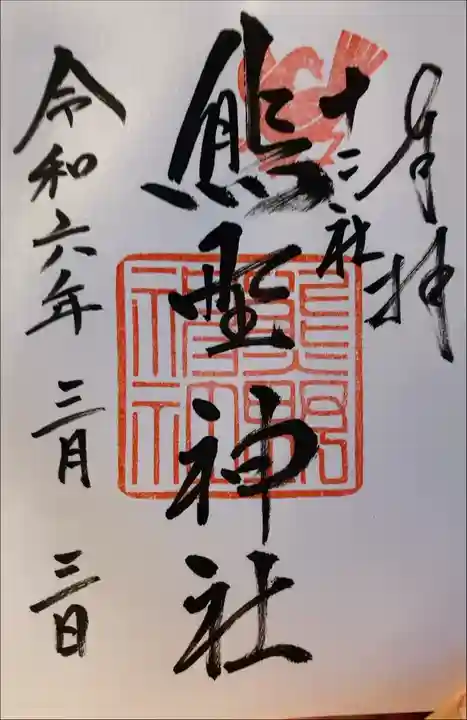 奉拝
十二社
熊野神社
令和六年 三月 三日